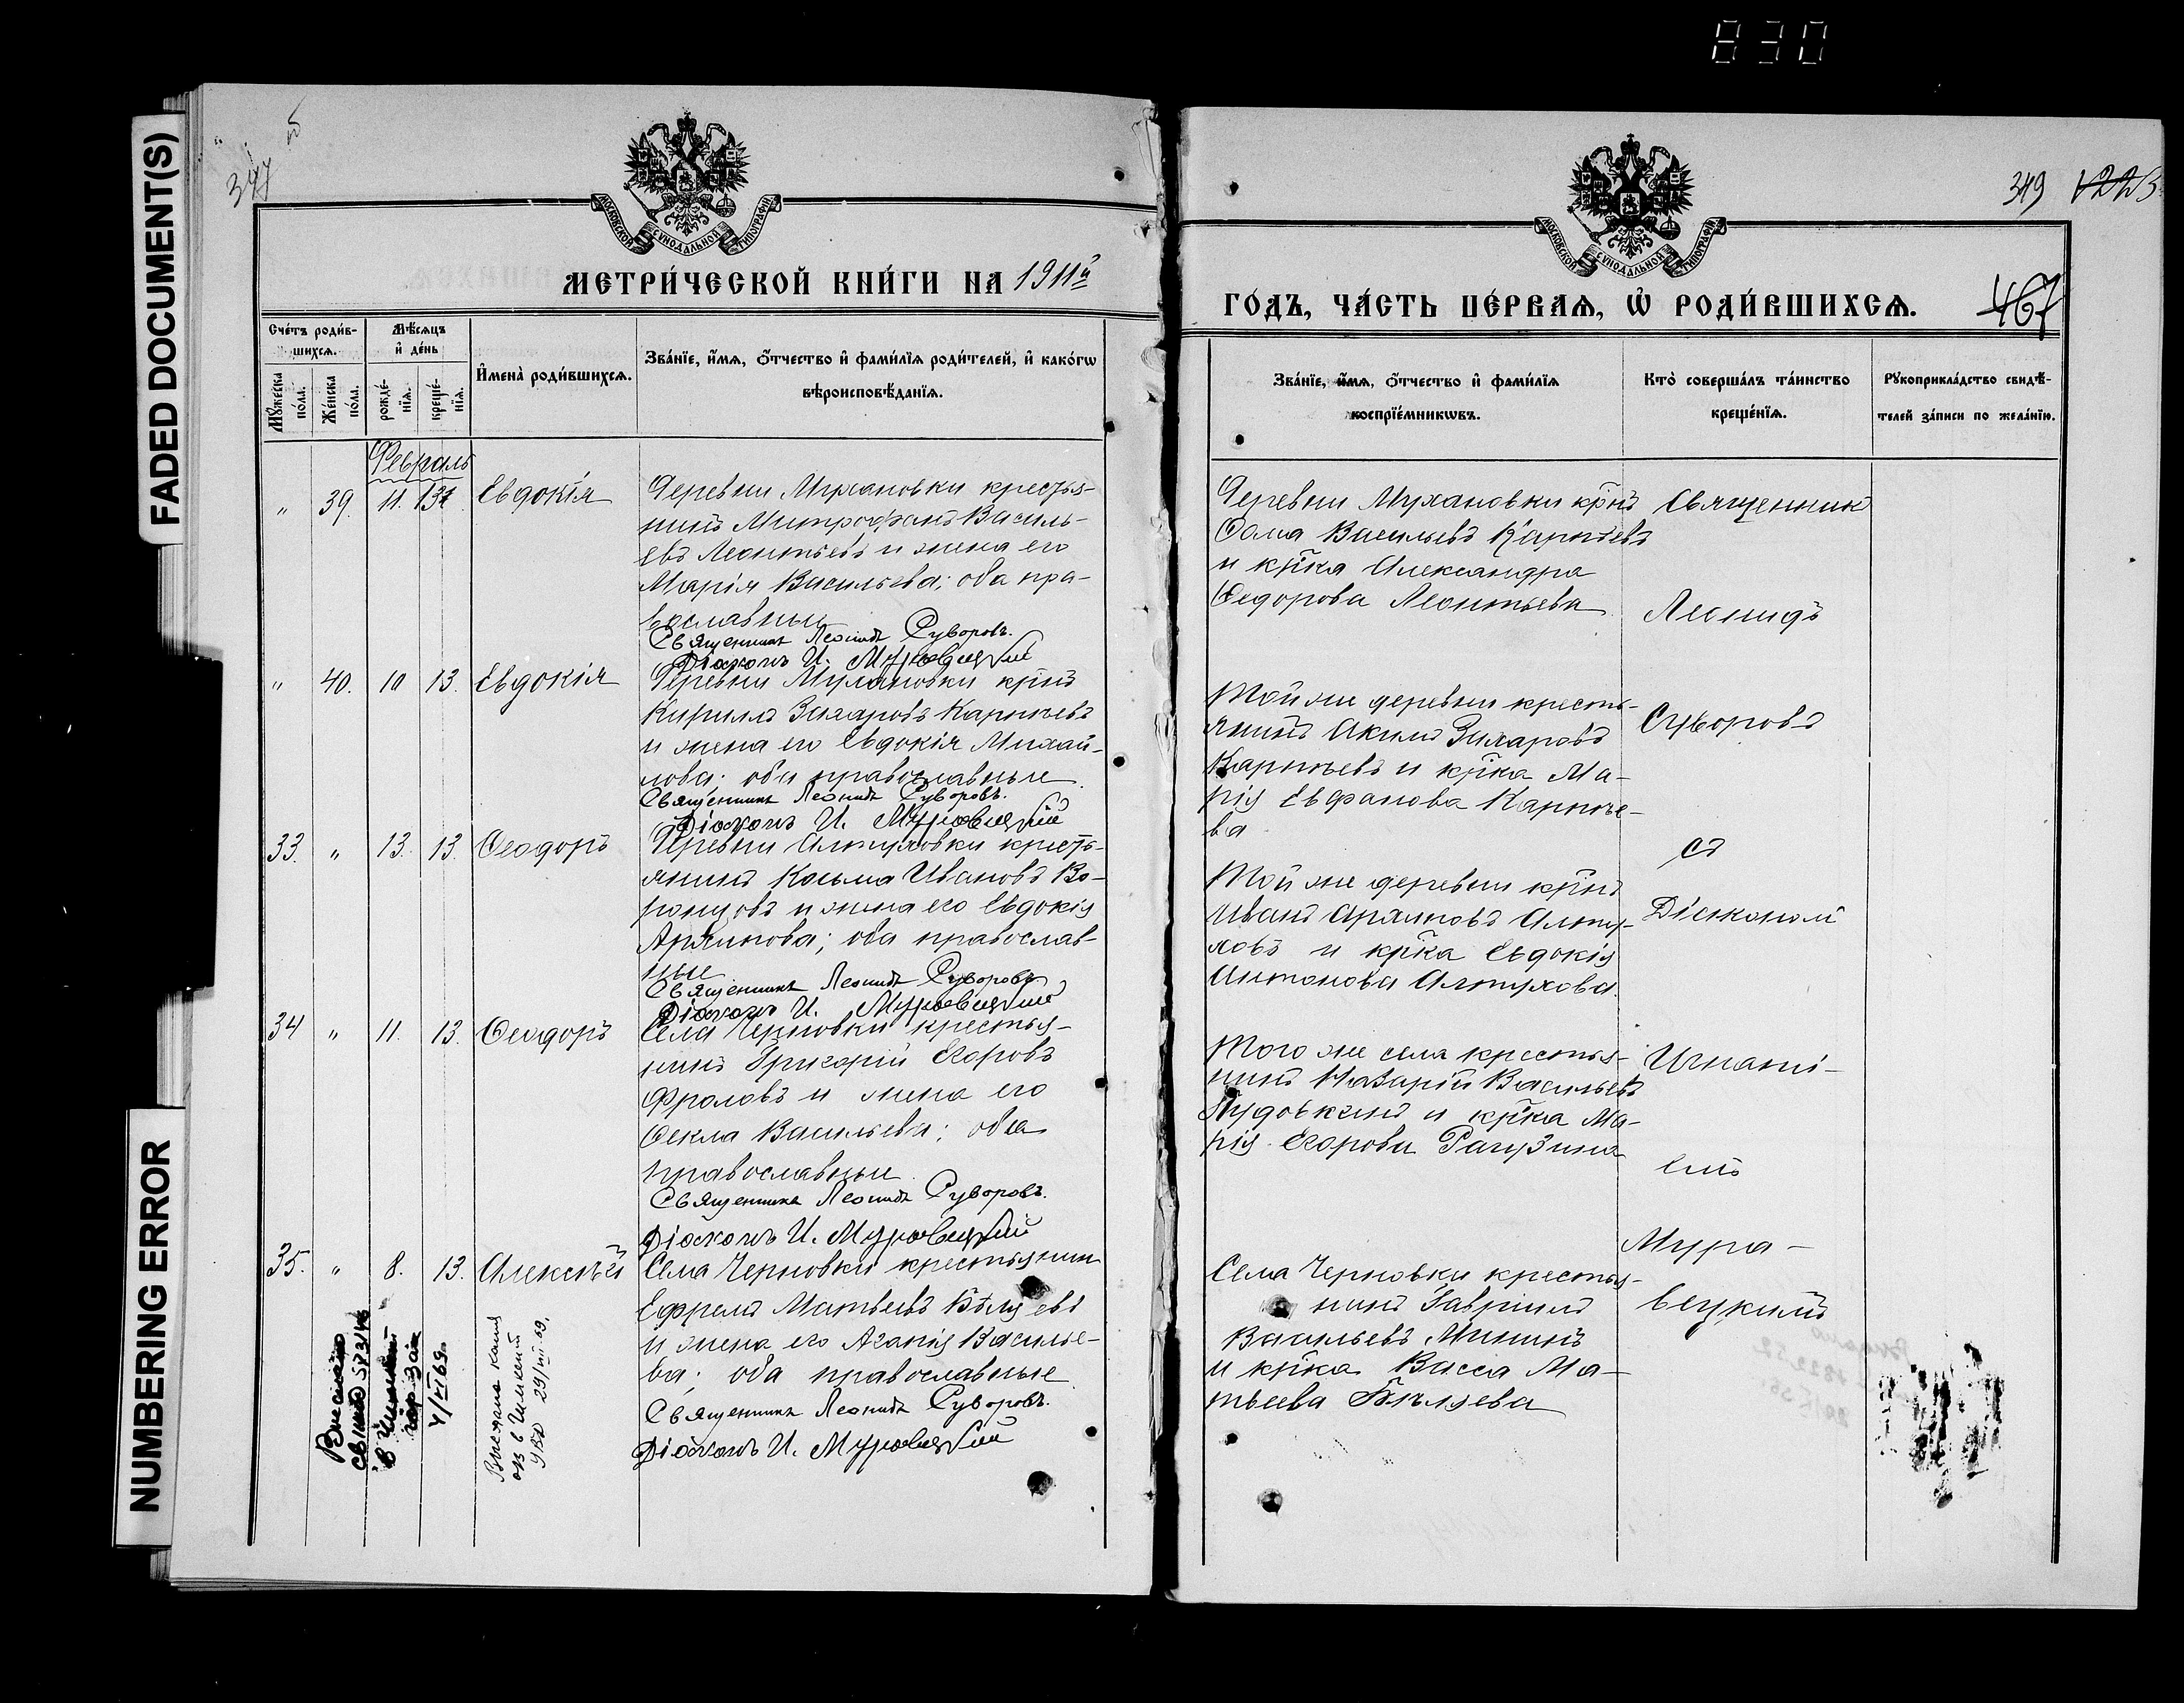 830
FADED DOCUMENT(S)
NUMBERING ERROR
347
МОСКОВСКОЙ СѴНОДАЛЬНОЙ ТИПОГРАФІИ
МЕТРИ́ЧЕСКОЙ КНИ́ГИ НА 1911й
Сче́тъ роди́в-
шихсѧ.
Мѣ́сѧцъ
и҆ де́нь
И҆мена̀ роди́вшихсѧ.
Зва́нїе, и҆́мѧ, ѻ҆́тчество и҆ фами́лїѧ роди́телей, и҆ како́гѡ
вѣроисповѣ́данїѧ.
Мꙋ́жеска
по́ла.
Же́нска
по́ла.
рожде́-
нїѧ.
креще́-
нїѧ.
Февраль
" 39. 11. 13 Евдокія
Деревни Мухановки крестья-
нинъ Митрофанъ Василь-
евъ Леонтьевъ и жена его
Марія Васильева; оба пра-
вославные
Священникъ Леонидъ Суворовъ.
Діаконъ И. Муравецкій
" 40. 10 13. Евдокія
Деревни Мухановки кр̃нъ
Кириллъ Захаровъ Карпѣевъ
и жена его Евдокія Михай-
лова; оба православные
Священникъ Леонидъ Суворовъ.
Діаконъ И. Муравецкій
33. " 13. 13. Ѳеодоръ
Деревни Алтуховки кресть-
янинъ Косьма Ивановъ Во-
ронцовъ и жена его Евдокія
оба православ-
ные
Священникъ Леонидъ Суворовъ
Діаконъ И. Муравецкій
34 " 11. 13. Ѳеодоръ
Села Черновки крестья-
нинъ Григорій Егоровъ
Фроловъ и жена его
Ѳекла Васильева; оба
православные
Священникъ Леонидъ Суворовъ.
Діаконъ И. Муравецкій
35. " 8. 13. Алексѣй
Села Черновки крестьянинъ
Ефремъ Матвѣевъ Бѣляевъ
и жена его Агапія Василье-
ва; оба православные
Священникъ Леонидъ Суворовъ.
Діаконъ И. Муравецкій
349
МОСКОВСКОЙ СѴНОДАЛЬНОЙ ТИПОГРАФІИ
ГО́ДЪ, ЧА́СТЬ ПЕ́РВАѦ, Ѡ҆ РОДИ́ВШИХСѦ.
467
Зва́нїе, и҆́мѧ, ѻ҆́тчество и҆ фами́лїѧ
воспрїе́мникѡвъ.
Кто̀ соверша́лъ та́инство
креще́нїѧ.
Рꙋкоприкла́дство свидѣ́-
телей за́писи по жела́нїю.
Деревни Мухановки кр̃нъ
Ѳома Васильевъ Карпѣевъ
и кр̃ка Александра
Ѳедорова Леонтьева
Той же деревни кресть-
янинъ Акимъ Захаровъ
Карпѣевъ и кр̃ка Ма-
рія Евфанова Карпѣе-
ва
Той же деревни кр̃нъ
Иванъ Алту-
ховъ и кр̃ка Евдокія
Антонова Алтухова.
Того же села крестья-
нинъ Назарій Васильевъ
Пудовкинъ и кр̃ка Ма-
рія Егорова Рагузина
Села Черновки крестья-
нинъ Гавріилъ
Васильевъ Мининъ
и кр̃ка Васса Ма-
твѣева Бѣляева
Священник
Леонидъ
Суворовъ
съ
Діакономъ
Игнаті-
емъ
Мура-
вецкимъ